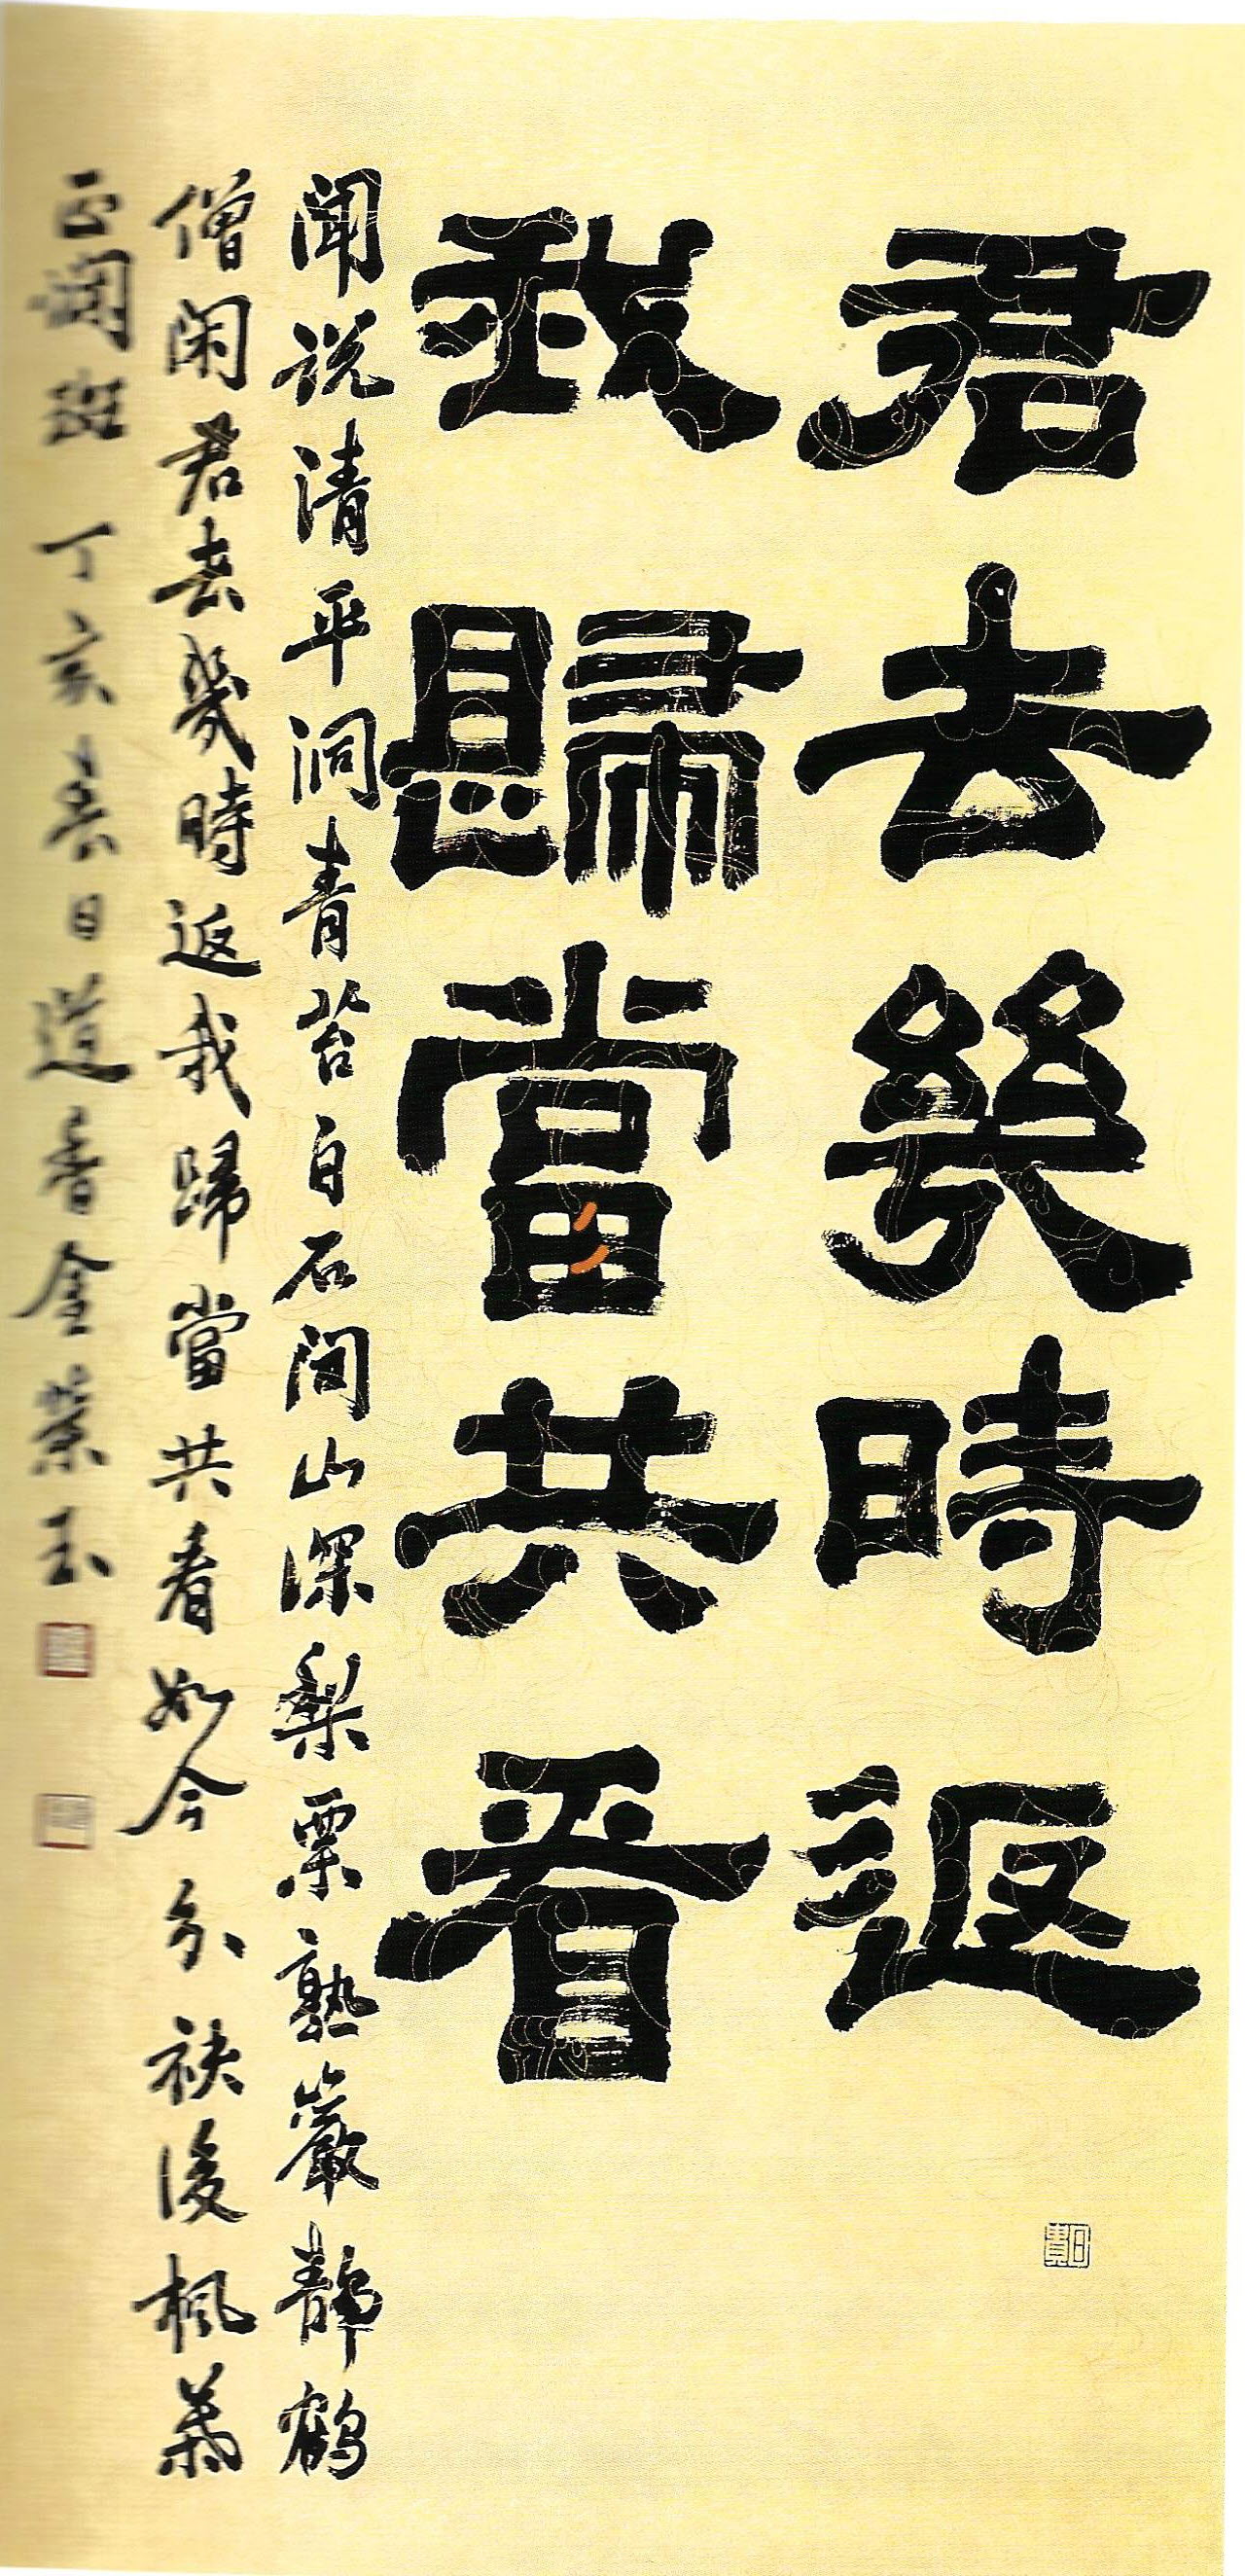 君去幾時返
我歸當共看
聞説清平洞青苔白石間山深梨栗熟巖靜鶴
僧閑君去幾時返我歸當共看如今分袂後楓葉
正斕斑 丁亥春日道香金 玉